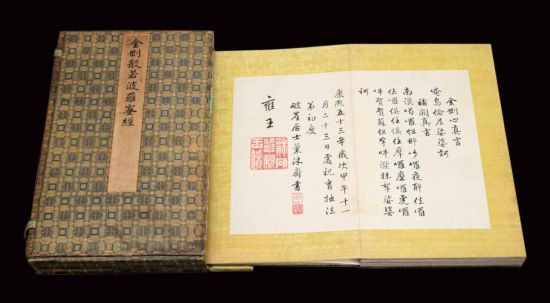 金剛般若波羅蜜經
金剛心真言
唵烏倫尼娑婆訶
補闕真言
南謨喝囉怛那哆囉夜耶佉囉
佉囉俱住俱住摩囉摩囉虎囉
吽賀賀蘇怛拏吽潑抹拏娑婆
訶
康熙五十三年歲次甲午十一
月二十三日虔祝書拙法
第初度
破塵居士薰沐齋書
雍王